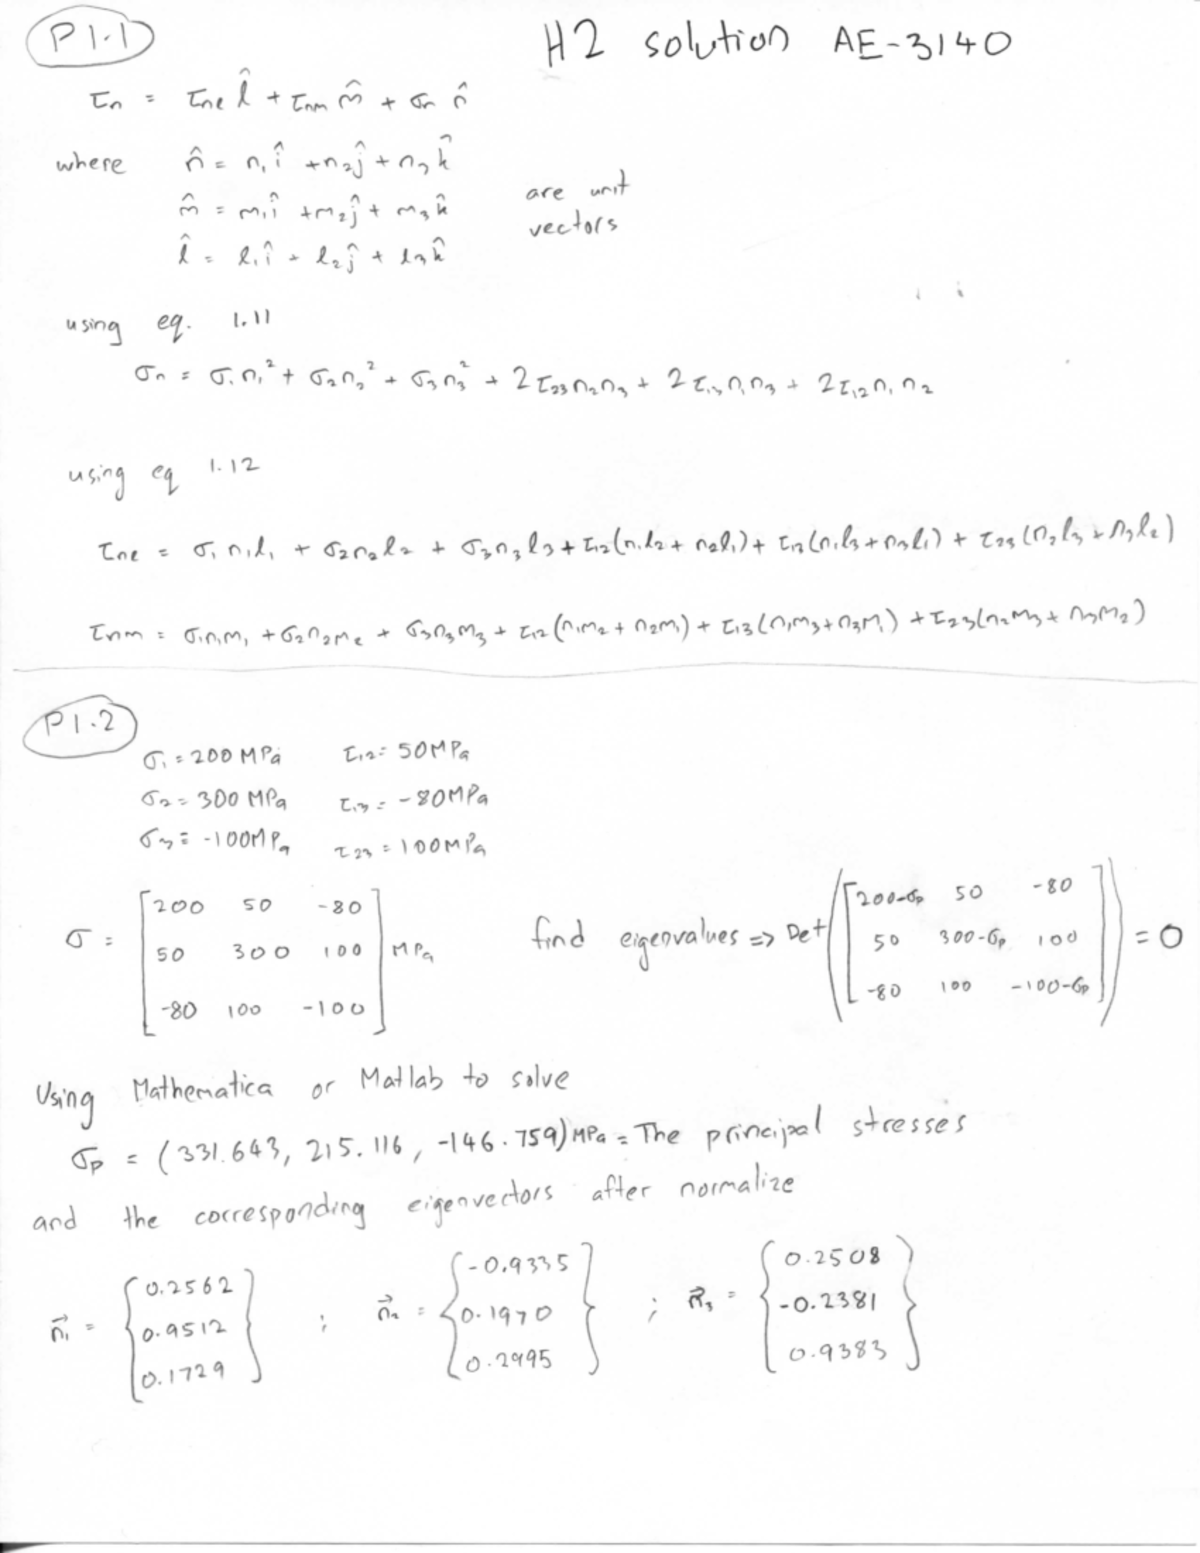 P1.1
H2 solution AE-3140
τn = τnℓ l̂ + τnm m̂ + σn n̂
where n̂ = n₁î + n₂ĵ + n₃k̂
m̂ = m₁î + m₂ĵ + m₃k̂
l̂ = l₁î + l₂ĵ + l₃k̂
are unit
vectors
using eq. 1.11
σn = σ₁n₁² + σ₂n₂² + σ₃n₃² + 2τ₂₃n₂n₃ + 2τ₁₃n₁n₃ + 2τ₁₂n₁n₂
using eq 1.12
τnℓ = σ₁n₁l₁ + σ₂n₂l₂ + σ₃n₃l₃ + τ₁₂(n₁l₂ + n₂l₁) + τ₁₃(n₁l₃ + n₃l₁) + τ₂₃(n₂l₃ + n₃l₂)
τnm = σ₁n₁m₁ + σ₂n₂m₂ + σ₃n₃m₃ + τ₁₂(n₁m₂ + n₂m₁) + τ₁₃(n₁m₃ + n₃m₁) + τ₂₃(n₂m₃ + n₃m₂)
P1.2
σ₁ = 200 MPa τ₁₂ = 50MPa
σ₂ = 300 MPa τ₁₃ = -80MPa
σ₃ = -100MPa τ₂₃ = 100MPa
σ = [200 50 -80
50 300 100
-80 100 -100] MPa
find eigenvalues => Det([200-σp 50 -80
50 300-σp 100
-80 100 -100-σp]) = 0
Using Mathematica or Matlab to solve
σp = (331.643, 215.116, -146.759) MPa = The principal stresses
and the corresponding eigenvectors after normalize
n⃗₁ = {0.2562
0.9512
0.1729} ;
n⃗₂ = {-0.9335
0.1970
0.2995} ;
n⃗₃ = {0.2508
-0.2381
0.9383}